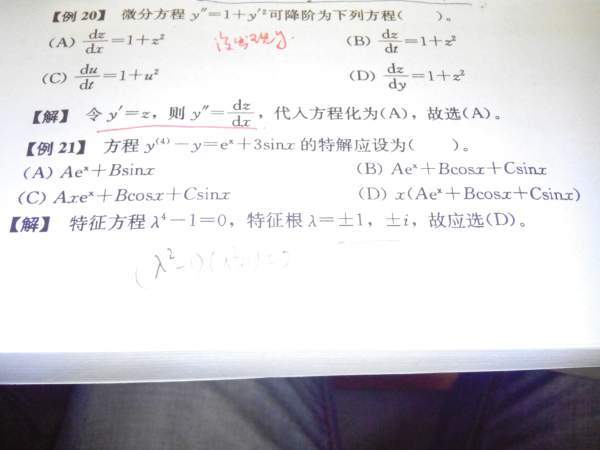 【例 20】 微分方程 y″=1+y′²可降阶为下列方程(  )。
(A) dz/dx=1+z² (B) dz/dt=1+z²
(C) du/dt=1+u² (D) dz/dy=1+z²
【解】 令 y′=z，则 y″=dz/dx，代入方程化为(A)，故选(A)。
【例 21】 方程 y⁽⁴⁾−y=eˣ+3sinx 的特解应设为(  )。
(A) Aeˣ+Bsinx (B) Aeˣ+Bcosx+Csinx
(C) Axeˣ+Bcosx+Csinx (D) x(Aeˣ+Bcosx+Csinx)
【解】 特征方程 λ⁴−1=0，特征根 λ=±1，±i，故应选(D)。